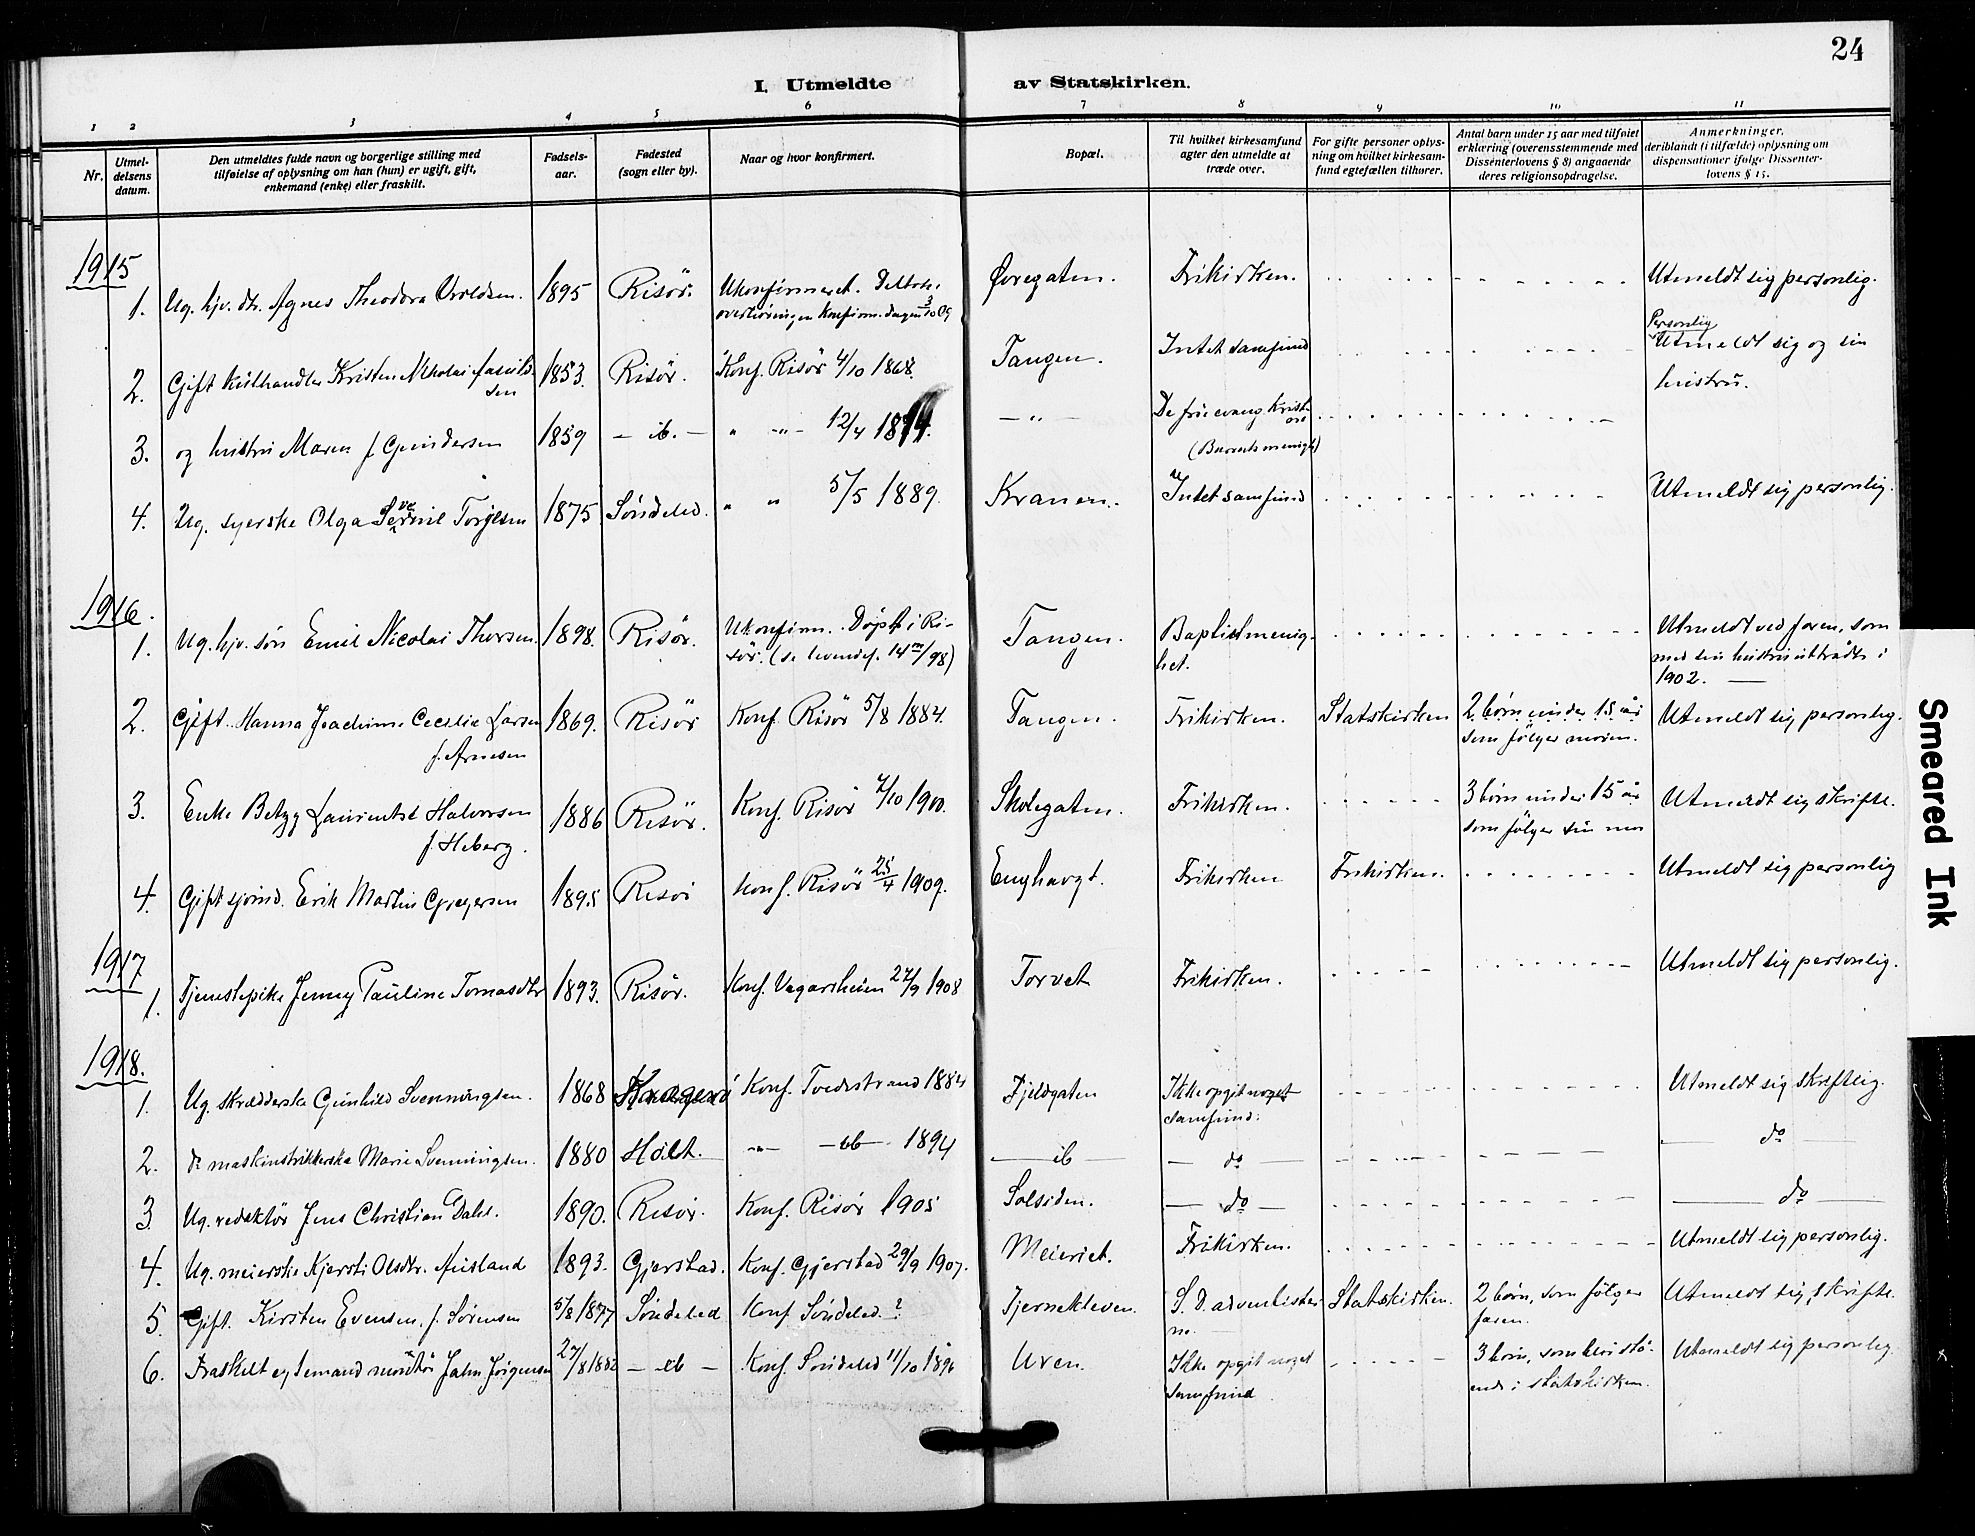 24
I. Utmeldte av Statskirken.
1 2 3 4 5 6 7 8 9 10 11
Nr.
Utmel-
delsens
datum.
Den utmeldtes fulde navn og borgerlige stilling med
tilføielse af oplysning om han (hun) er ugift, gift,
enkemand (enke) eller fraskilt.
Fødsels-
aar.
Fødested
(sogn eller by).
Naar og hvor konfirmert.
Bopæl.
Til hvilket kirkesamfund
agter den utmeldte at
træde over.
For gifte personer oplys-
ning om hvilket kirkesam-
fund egtefællen tilhører.
Antal barn under 15 aar med tilføiet
erklæring (overensstemmende med
Dissenterlovens § 8) angaaende
deres religionsopdragelse.
Anmerkninger,
deriblandt (i tilfælde) oplysning om
dispensationer ifølge Dissenter-
lovens § 15.
1915
1. Ug. hjv. dtr. Agnes Theodora 1895 Risör. Ukonfirmeret. Øvregaten. Frikirken. Utmeldt sig personlig.
2. Gift Kristen Nikolai 1853. Risör. Konf. Risör 4/10 1868. Tangen. Intet samfund Personlig Utmeldt sig og sin
sen hustru.
3. og hustru Maren f. Gundersen 1859 – ib. – " – " – 12/4 1874. – " – De frie evang. Krist-
ne
4. Ug. syerske Olga Torjesen 1875 Søndeled. " " 5/5 1889. Kranen. Intet samfund Utmeldt sig personlig.
1916.
1. Ug. hjv. søn Emil Nicolai Thorsen. 1898. Risör. Ukonfirm. Døpt i Ri- Tangen. Baptistmenig- Utmeldt ved faren, som
sör. het. med sin hustru utträdte i
1902. —
2. Gift. Hanna Joachime Cecilie Larsen 1869. Risör Konf. Risör 5/8 1884. Tangen. Frikirken. Statskirken 2 børn under 15 år Utmeldt sig personlig.
f. Arnesen som følger moren.
3. Enke Betzy Halvorsen 1886 Risör. Konf. Risör 7/10 1900. Skolegaten. Frikirken. 3 børn under 15 år Utmeldt sig skriftl.
f. Heberg. som følger sin mor
4. Gift sjömd. Erik Martin Gregersen 1895 Risör Konf. Risör 25/4 1909. Enghavgt. Frikirken Frikirken. Utmeldt sig personlig
1917
1. Tjenestepike Jenny Pauline Tomasdtr 1893. Risör. Konf. Vegarsheien 27/9 1908 Torvet Frikirken. Utmeldt sig personlig.
1918.
1. Ug. skrædderske Gunhild Svenningsen. 1868 Kragerö Konf. Tvedestrand 1884 Fjeldgaten Ikke opgit noget Utmeldt sig skriftlig.
samfund.
2. do maskinstrikkerske Marie Svenningsen. 1880 Holt. – " – – ib – 1894 — ib — – do – — do —
3. Ug. redaktör Jens Christian Dahl. 1890. Risör. Konf. Risör 1905 Solsiden. – do – — do —
4. Ug. meierske Kjersti Olsdtr. Ausland 1893. Gjerstad. Konf. Gjerstad 29/9 1907. Meieriet. Frikirken. Utmeldt sig personlig.
5. Gift. Kirsten Evensen, f. Sørensen 5/8 1877 Søndeled Konf Søndeled. ? Tjernekleven. S. D. adventister Statskirken. 2 børn, som følger Utmeldt sig skriftl.
ne. — faren.
6. Fraskilt egtemand montör John Jörgensen 27/8 1882 – ib – Konf. Søndeled 11/10 1896 Uren. Ikke opgit noget 3 børn, som blir stå- Utmeldt sig personlig.
samfund ende i statskirken.
Smeared Ink